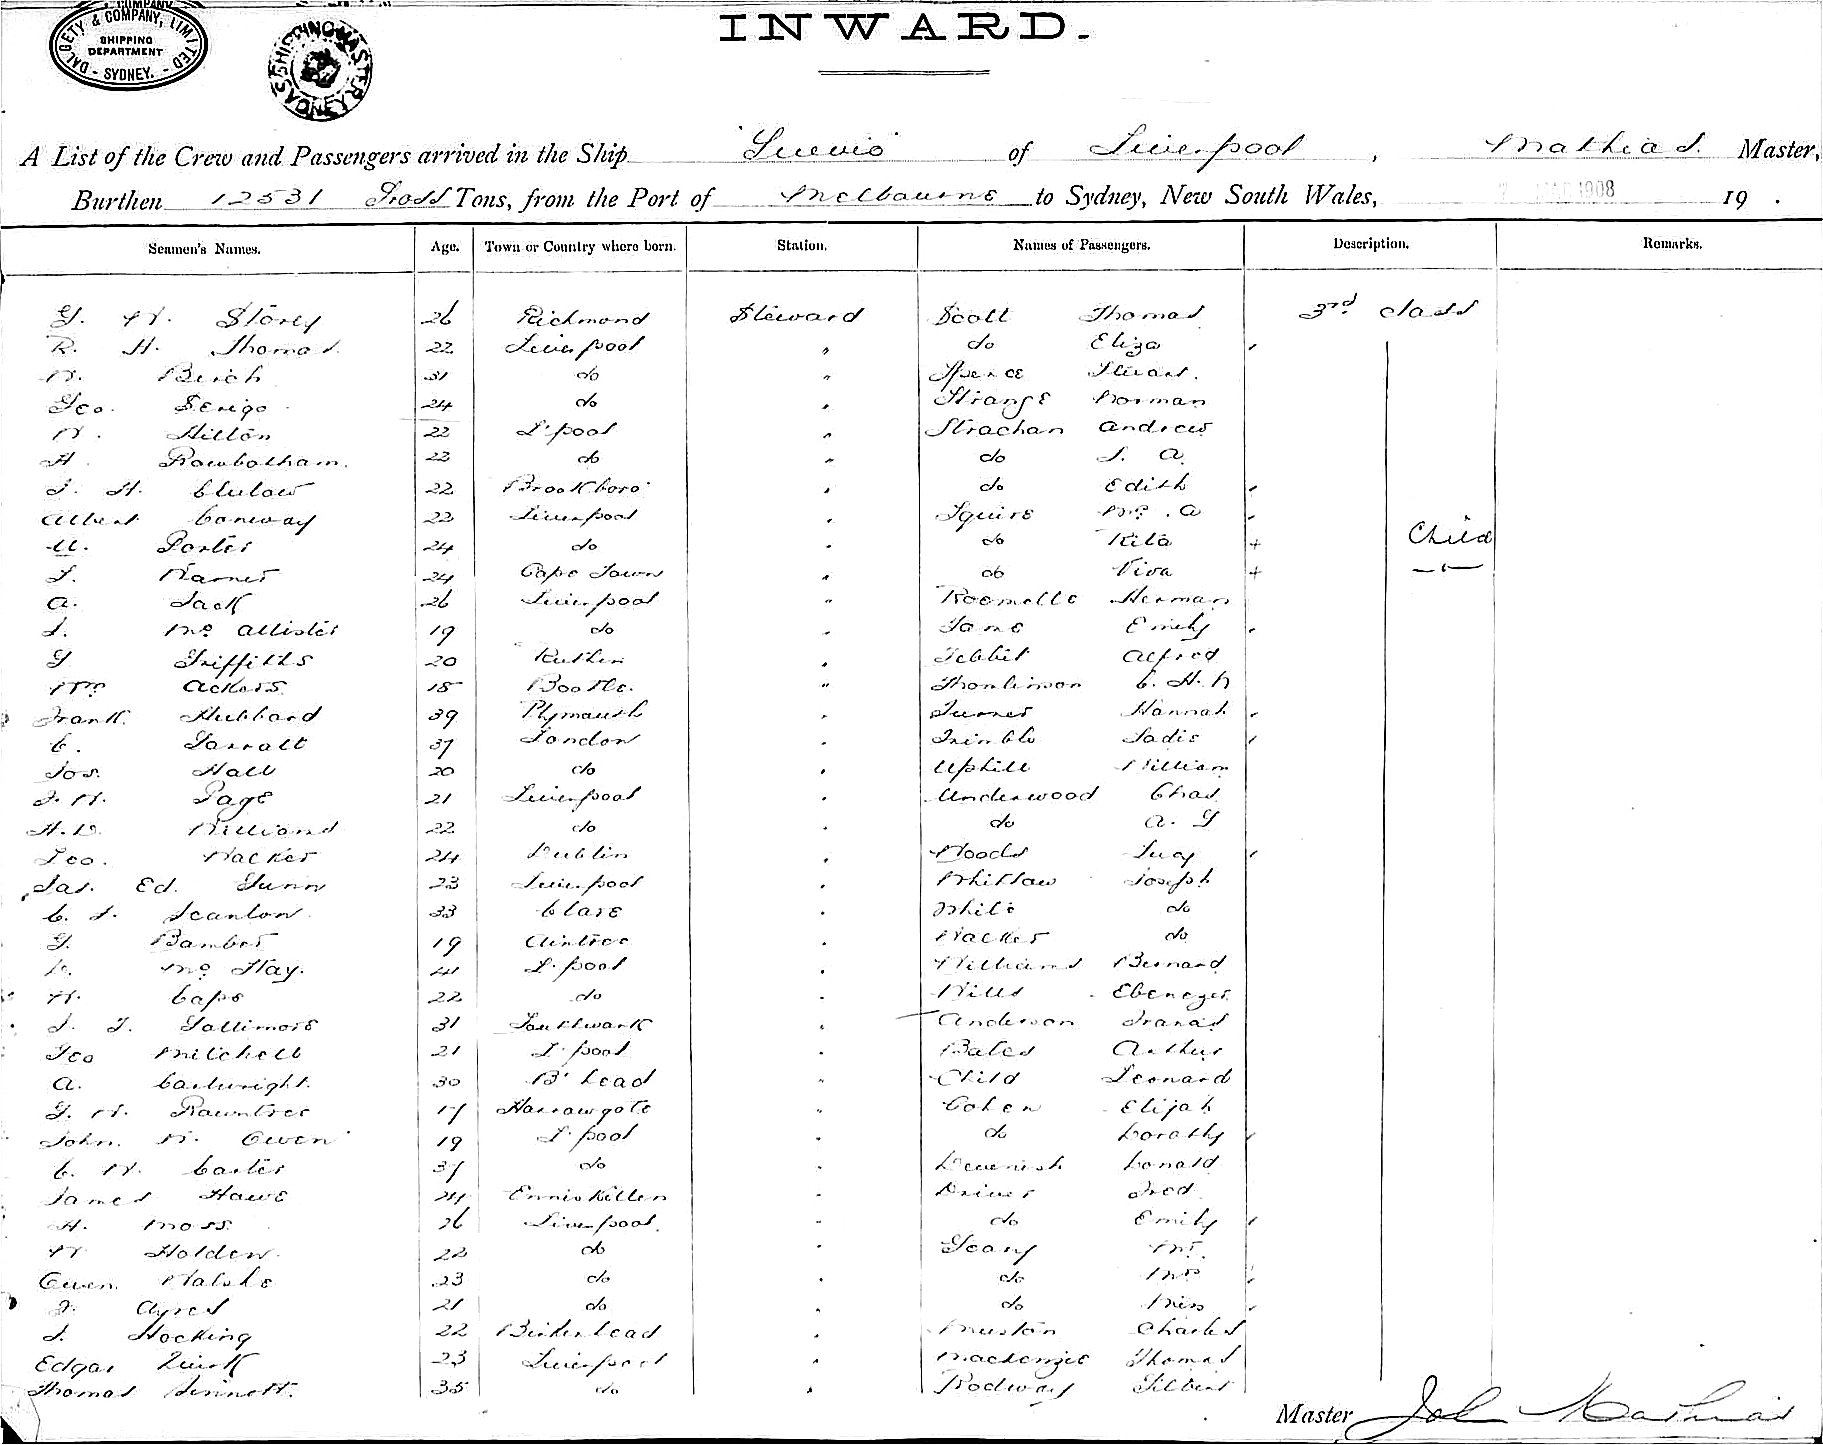 DALGETY & COMPANY, LIMITED
SHIPPING
DEPARTMENT
- SYDNEY. -
SHIPPING MASTER SYDNEY
INWARD.
A List of the Crew and Passengers arrived in the Ship "Suevic" of Liverpool, Mathias. Master,
Burthen 12531 Gross Tons, from the Port of Melbourne to Sydney, New South Wales, 1908 19 .
Seamen's Names. Age. Town or Country where born. Station. Names of Passengers. Description. Remarks.
G. W. Storey 26 Richmond Steward Scott Thomas 3rd class
R. H. Thomas. 22 Liverpool " do Eliza
W. Birch 31 do " Spence Stuart.
Geo. Serigo 24 do " Strange Norman
W. Hilton 22 L'pool " Strachan Andrew
H. Rowbotham. 23 do " do J. A.
J. H. Clulow 22 Brookboro' " do Edith
Albert Conway 22 Liverpool " Squire Mrs. A
U. Porter 24 do " do Rita + Child
J. Warner 24 Cape Town " do Viva + - " -
A. Jack 26 Liverpool " Roemelle Herman
J. McAllister 19 do " Tame Emily
G Griffiths 20 Ruthin " Tebbit Alfred
Wm Ackers. 18 Bootle. " Thomlinson C. H. W
Frank. Hubbard 39 Plymouth " Turner Hannah
C. Garratt 37 London " Trimble Sadie
Jos. Hall 20 do " Uphill William
J. W. Page 21 Liverpool " Underwood Chas
H. D. Williams 22 do " do A. G
Geo. Walker 24 Dublin " Woods Lucy
Jas. Ed. Gunn 23 Liverpool " Whitlaw Joseph
C. J. Scanlon. 33 Clare " White do
G. Bamber 19 Aintree " Walker do
McHay. 41 L'pool " Williams Bernard
W. Capo 22 do " Wills Ebenezer
J. T. Gallimore 31 Southwark " Anderson Francis
Geo Mitchell 21 L'pool " Bates Arthur
A. Cartwright. 30 B'head " Child Leonard
G. W. Rowntree 17 Harrowgate " Cohen Elijah
John. W. Owen 19 L'pool " do Dorothy
C. W. Carter 37 do " Devenish Donald
James Hawe 24 Enniskillen " Driver Fred.
H. Moss 26 Liverpool. " do Emily
W Holden. 22 do " Geary Mr.
Owen Walshe 23 do " do Mrs
J. Ayres 21 do " do Miss
J. Hocking 22 Birkenhead " Muston Charles
Edgar Quirk 23 Liverpool " Mackenzie Thomas
Thomas Sinnott. 35 do " Rodway Gilbert
Master John Mathias